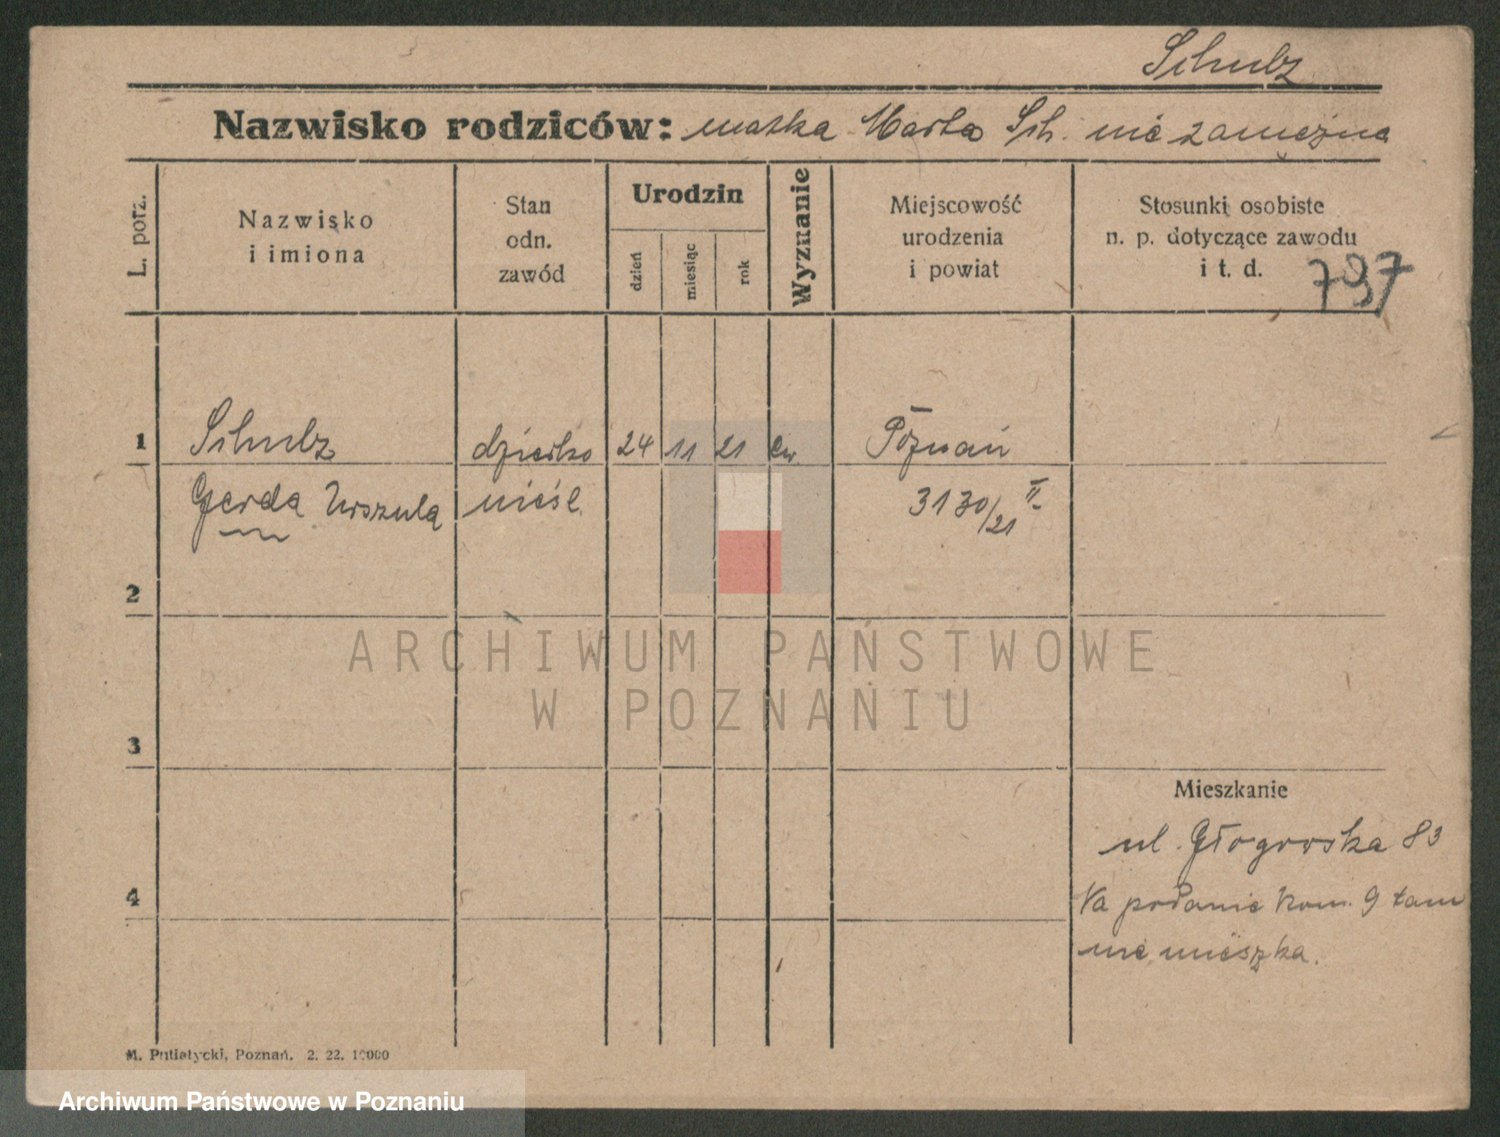 Schulz
Nazwisko rodziców: matka Marta Sch. nie zamężna
L. porz.
Nazwisko
i imiona
Stan
odn.
zawód
Urodzin
dzień
miesiąc
rok
Wyznanie
Miejscowość
urodzenia
i powiat
Stosunki osobiste
n. p. dotyczące zawodu
i t. d.
797
1
Schulz
dziecko
24
11
21
ew.
Poznań
Gerda Urszula
nieśl.
3130/21 II.
2
3
4
Mieszkanie
ul. Głogowska 83
Na podanie kom. 9 tam
nie mieszka.
M. Putiatycki, Poznań. 2. 22. 10000
ARCHIWUM PAŃSTWOWE
W POZNANIU
Archiwum Państwowe w Poznaniu